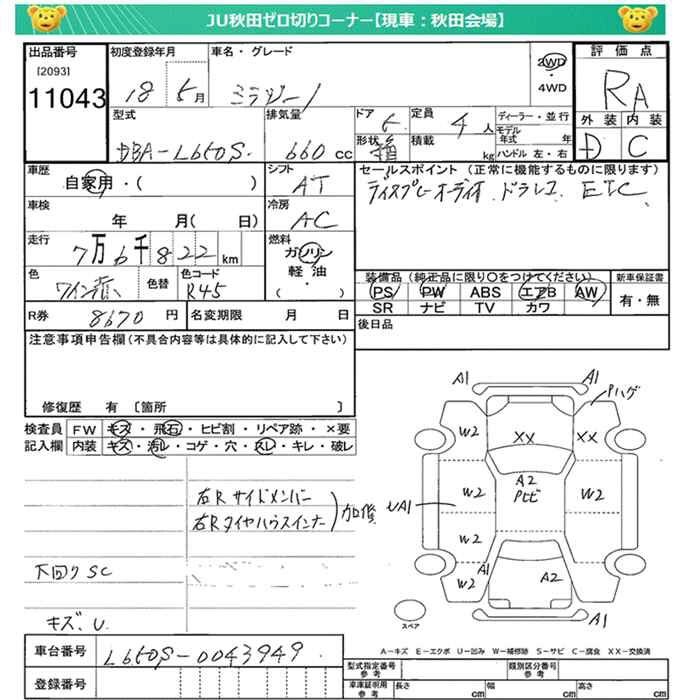 JU秋田ゼロ切りコーナー【現車：秋田会場】
出品番号 [2093] 11043
初度登録年月 18 5月
車名・グレード ミラジーノ
2WD・4WD
評価点 RA
外装 D 内装 C
型式 DBA-L650S
排気量 660 cc
ドア 5
形状 箱
定員 4人
積載 kg
ディーラー・並行
モデル年式 年
ハンドル 左・右
車歴 自家用・( )
シフト AT
セールスポイント（正常に機能するものに限ります）
ディスプレーオーディオ ドラレコ ETC
車検 年 月( 日)
冷房 AC
走行 7万6千822km
燃料 ガソリン 軽・油 ( )
色 ワイン赤
色替
色コード R45
装備品（純正品に限り○をつけてください）
PS PW ABS エアB AW
SR ナビ TV カワ
新車保証書 有・無
R券 8670円
名変期限 月 日
後日品
注意事項申告欄（不具合内容等は具体的に記入して下さい）
修復歴 有 〔箇所 〕
検査員記入欄
FW キズ・飛石・ヒビ割・リペア跡・×要
内装 キズ・汚レ・コゲ・穴・スレ・キレ・破レ
右Rサイドメンバー
右Rタイヤハウスインナー
下回りSC
キズ、U
A1 A1 ハゲ
W2 XX XX
A2
W2 W2
UA1
W2
W2 A1 A2
A1
スペア
A－キズ E－エクボ U－凹み W－補修跡 S－サビ C－腐食 XX－交換済
車台番号 L650S-0043949
登録番号
型式指定番号 参考
類別区分番号 参考
車庫証明用 参考 長さ cm 幅 cm 高さ cm